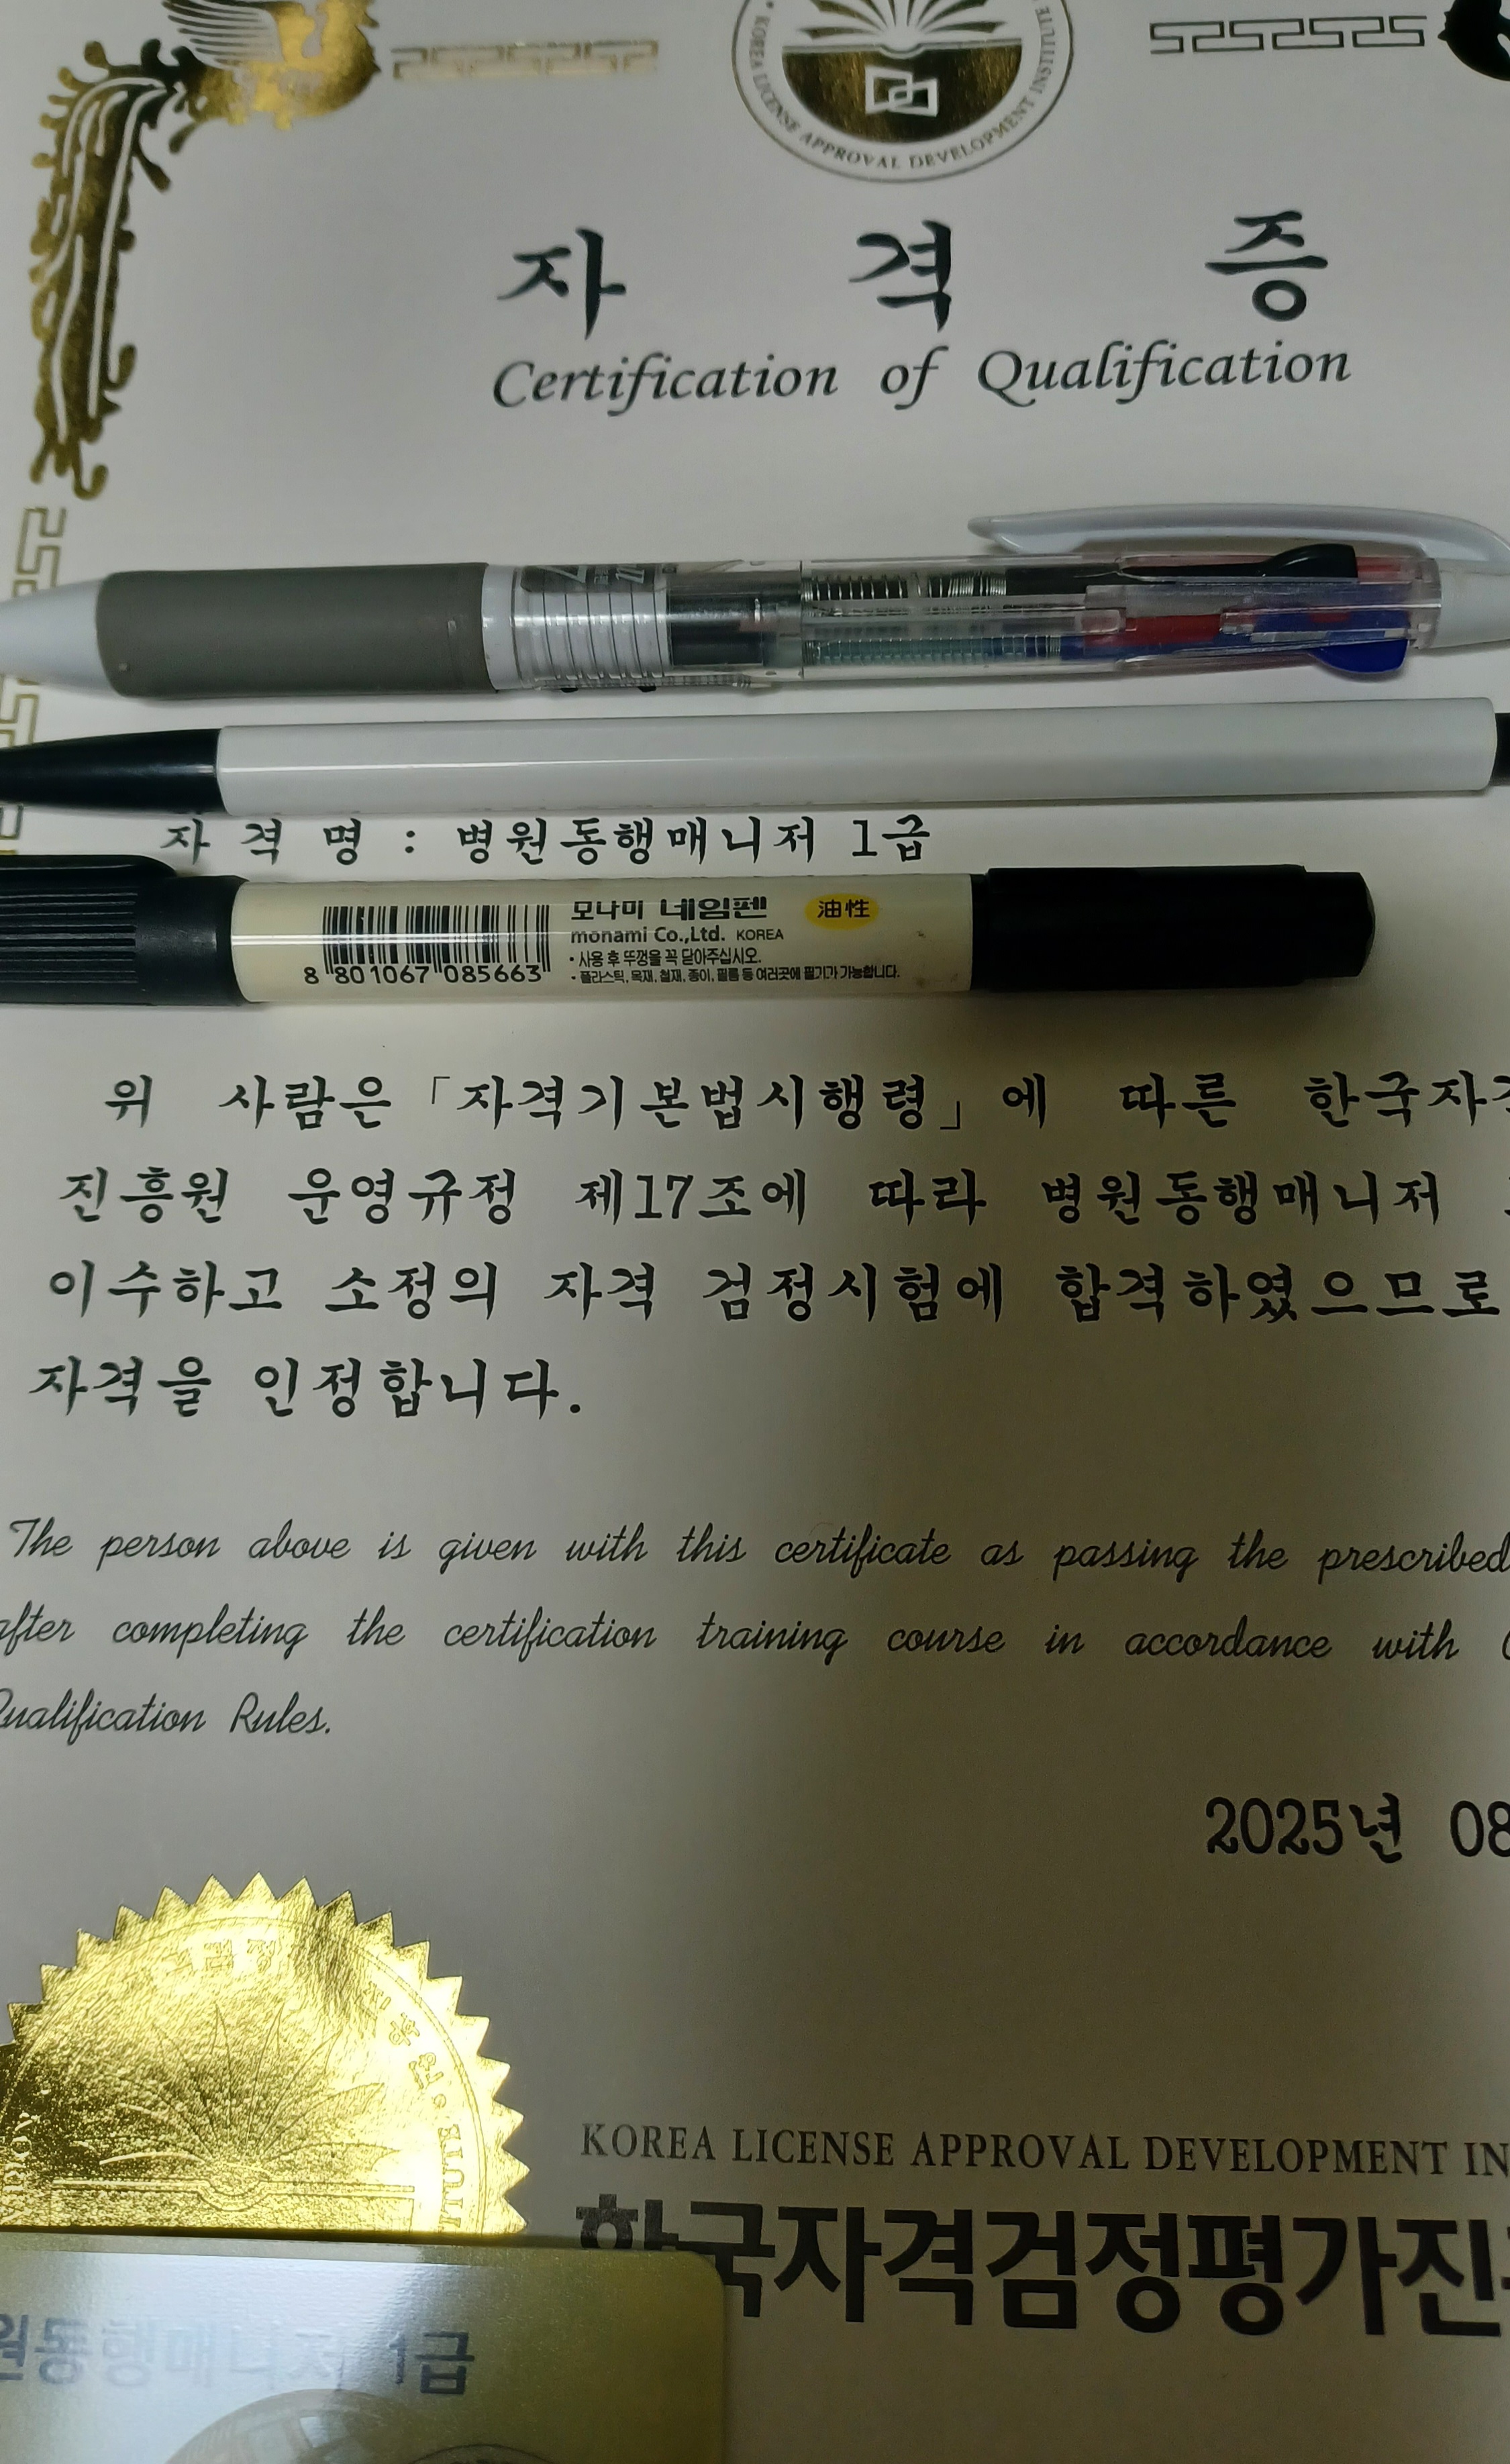 KOREA LICENSE APPROVAL DEVELOPMENT INSTITUTE
자 격 증
Certification of Qualification
자 격 명 : 병원동행매니저 1급
모나미 네임펜 油性
monami Co.,Ltd. KOREA
• 사용 후 뚜껑을 꼭 닫아주십시오.
• 플라스틱, 목재, 철재, 종이, 필름 등 여러곳에 필기가 가능합니다.
8 801067 085663
위 사람은 「자격기본법시행령」에 따른 한국자격
진흥원 운영규정 제17조에 따라 병원동행매니저
이수하고 소정의 자격 검정시험에 합격하였으므로
자격을 인정합니다.
The person above is given with this certificate as passing the prescribed
after completing the certification training course in accordance with
Qualification Rules.
2025년 08
KOREA LICENSE APPROVAL DEVELOPMENT IN
한국자격검정평가진
원동행매니저 1급